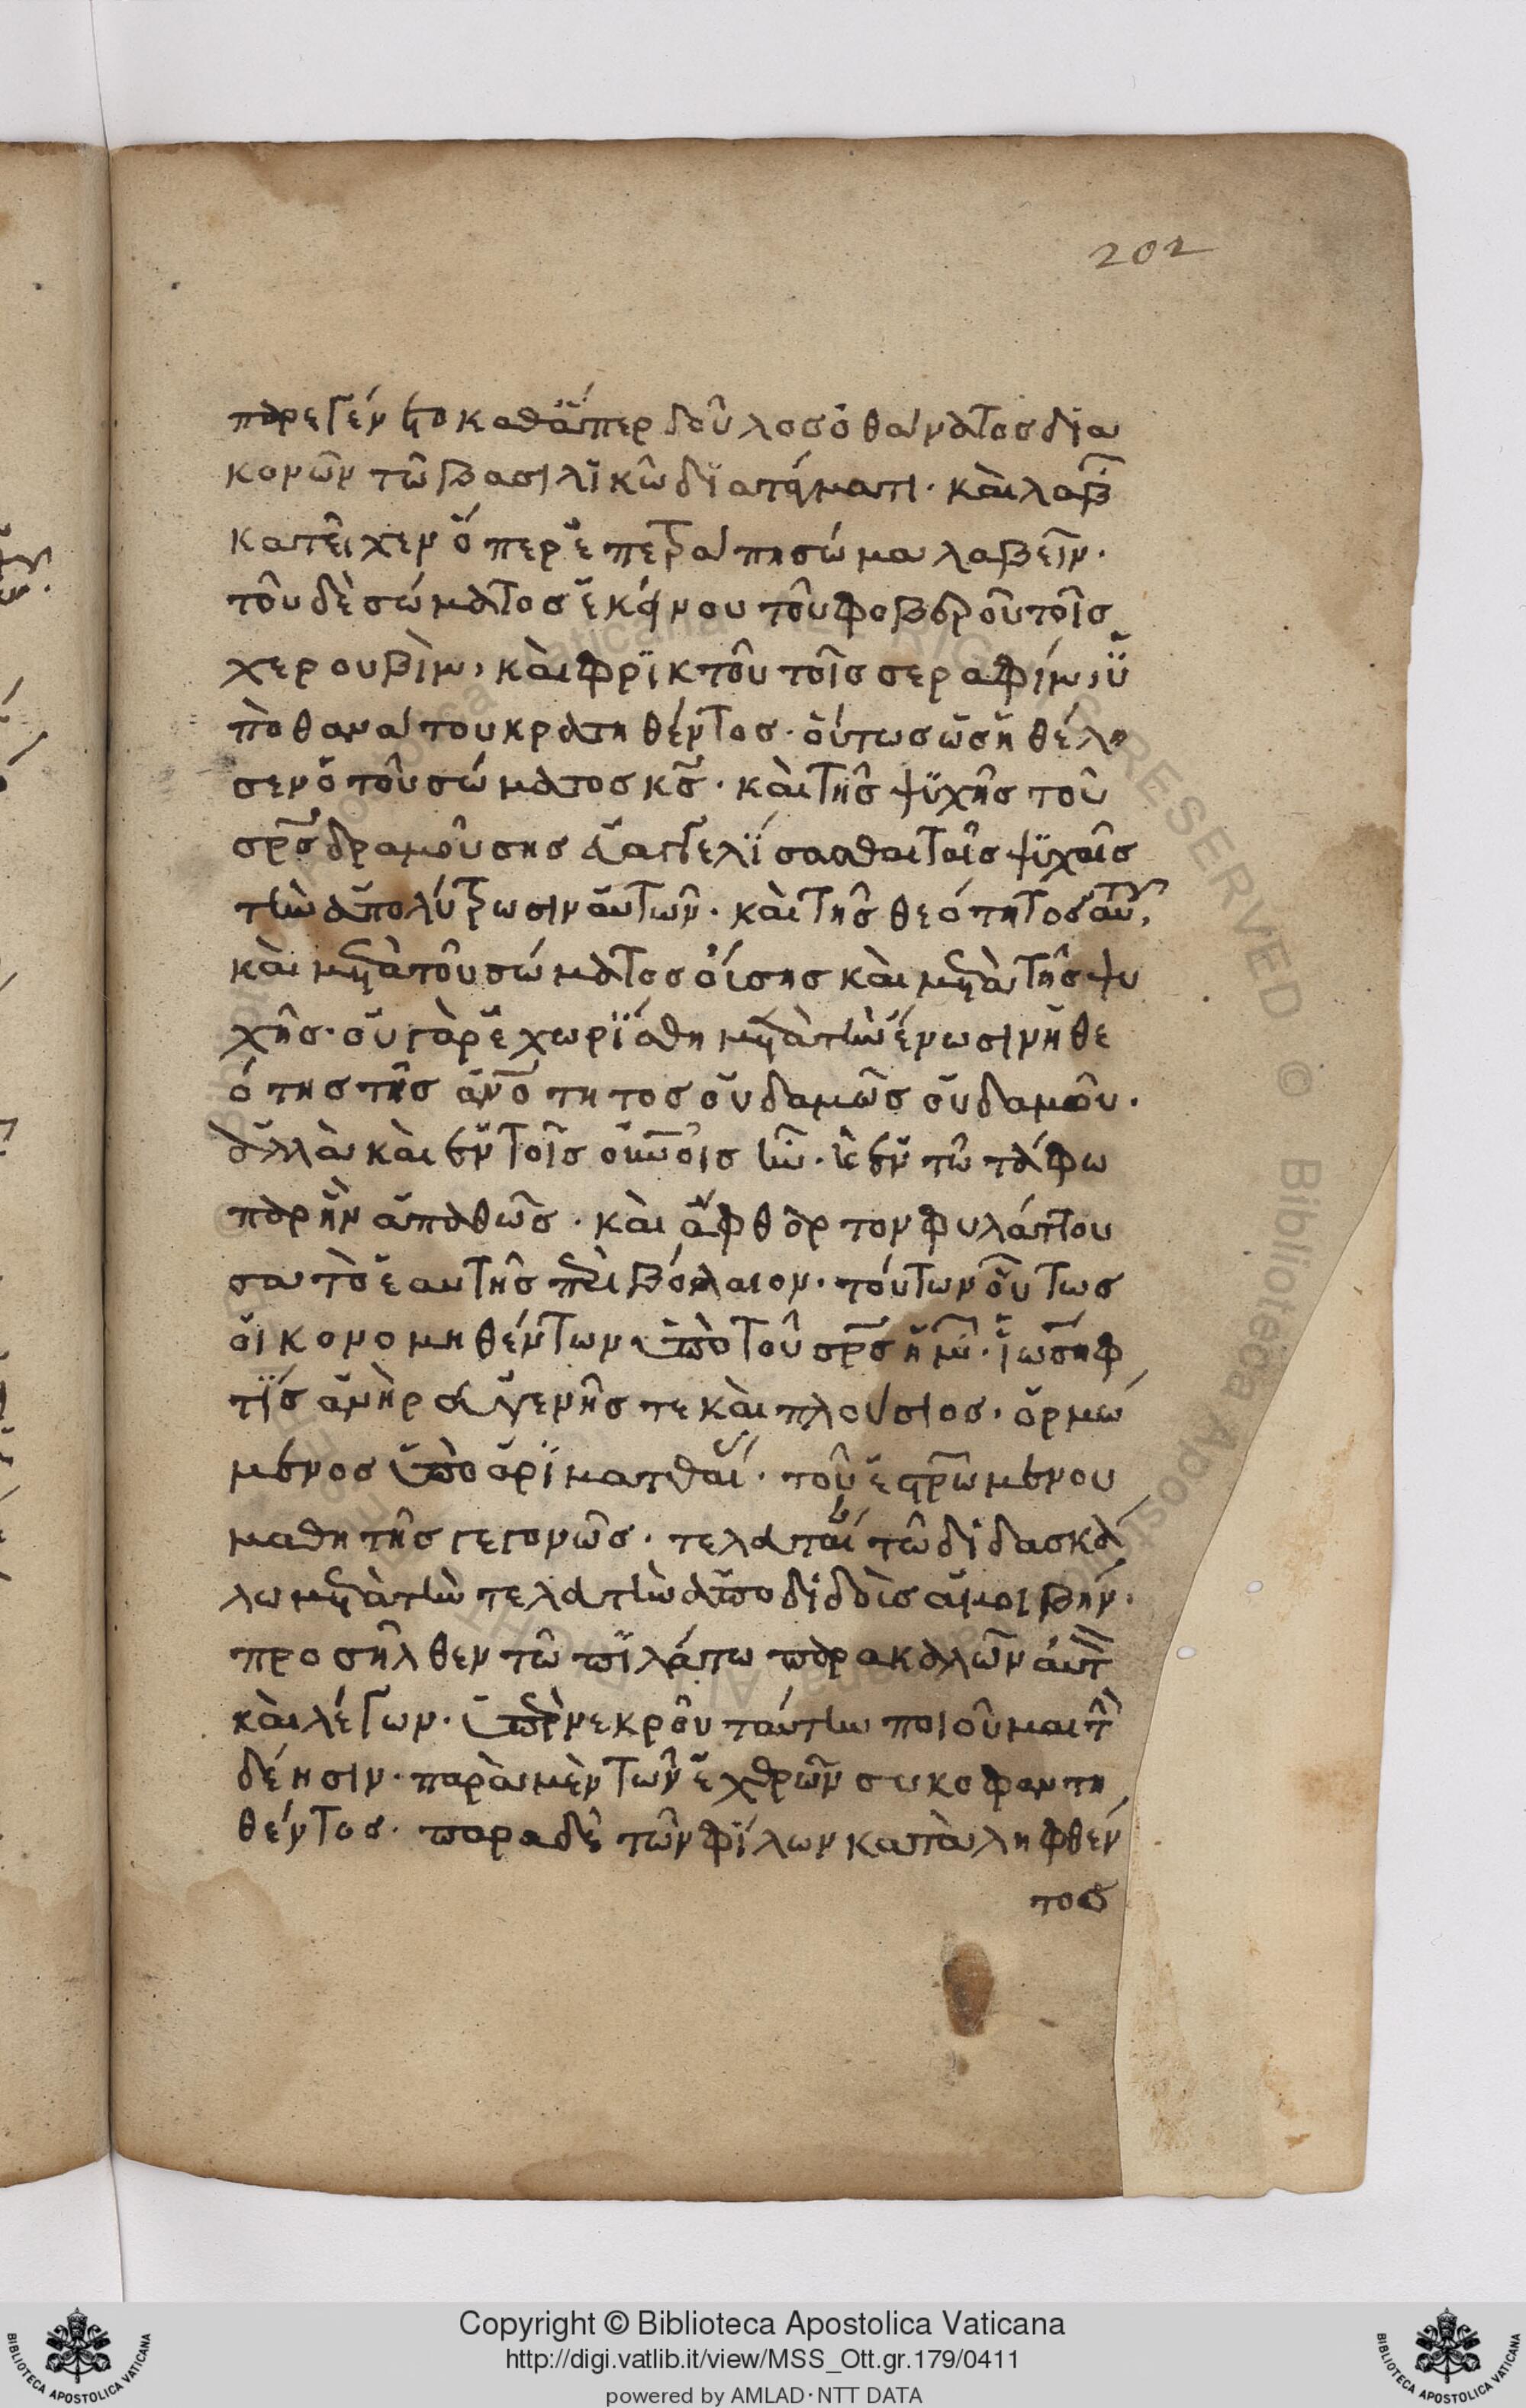 202
παρεγένετο καθάπερ δοῦλος ὁ θάνατος δια
κονῶν τῶ βασιλικῶ διατάγματι· καὶ λαβ
κατεῖχεν ὅπερ ἐπετράπη σῶμα λαβεῖν·
τοῦ δὲ σώματος ἐκείνου τοῦ φοβεροῦ τοῖς
χερουβὶμ, καὶ φρικτοῦ τοῖς σεραφὶμ, ὑ
πὸ θανάτου κρατηθέντος· οὕτως ὡς ἠθέλη
σεν ὁ τοῦ σώματος κς· καὶ τῆς ψυχῆς τοῦ
σρς δραμούσης εὐαγγελίσασθαι ταῖς ψυχαῖς
τὴν ἀπολύτρωσιν αὐτῶν· καὶ τῆς θεότητος αὐτοῦ,
καὶ μετὰ τοῦ σώματος οὔσης καὶ μετὰ τῆς ψυ
χῆς· οὐ γὰρ ἐχωρίσθη μετὰ τὴν ἕνωσιν ἡ θε
ότης τῆς ἀνότητος οὐδαμῶς οὐδαμοῦ·
ἀλλὰ καὶ ἐν τοῖς οὐνοις ἦν· καὶ ἐν τῶ τάφω
παρῆν ἀπαθῶς· καὶ ἄφθαρτον φυλάττου
σα τὸ ἑαυτῆς περιβόλαιον· τούτων οὕτως
οἰκονομηθέντων ὑπὸ τοῦ σρς ἡμῶν· ἰωσὴφ
τίς ἀνὴρ εὐγενής τε καὶ πλούσιος· ὁρμώ
μενος ἀπὸ ἀριματθαί· τοῦ ἐσταυρωμένου
μαθητὴς γεγονώς· τελευταίαν τῶ διδασκά
λω μετὰ τὴν τελευτὴν ἀποδιδοὺς ἀμοιβήν·
προσῆλθεν τῶ πιλάτω παρακαλῶν αὐτ
καὶ λέγων· ὑπὲρ νεκροῦ ταύτην ποιοῦμαι τὴν
δέησιν· παρὰ μὲν τῶν ἐχθρῶν συκοφαντη
θέντος· παρα δὲ τῶν φίλων καταληφθέν
τος
Copyright © Biblioteca Apostolica Vaticana
http://digi.vatlib.it/view/MSS_Ott.gr.179/0411
powered by AMLAD·NTT DATA